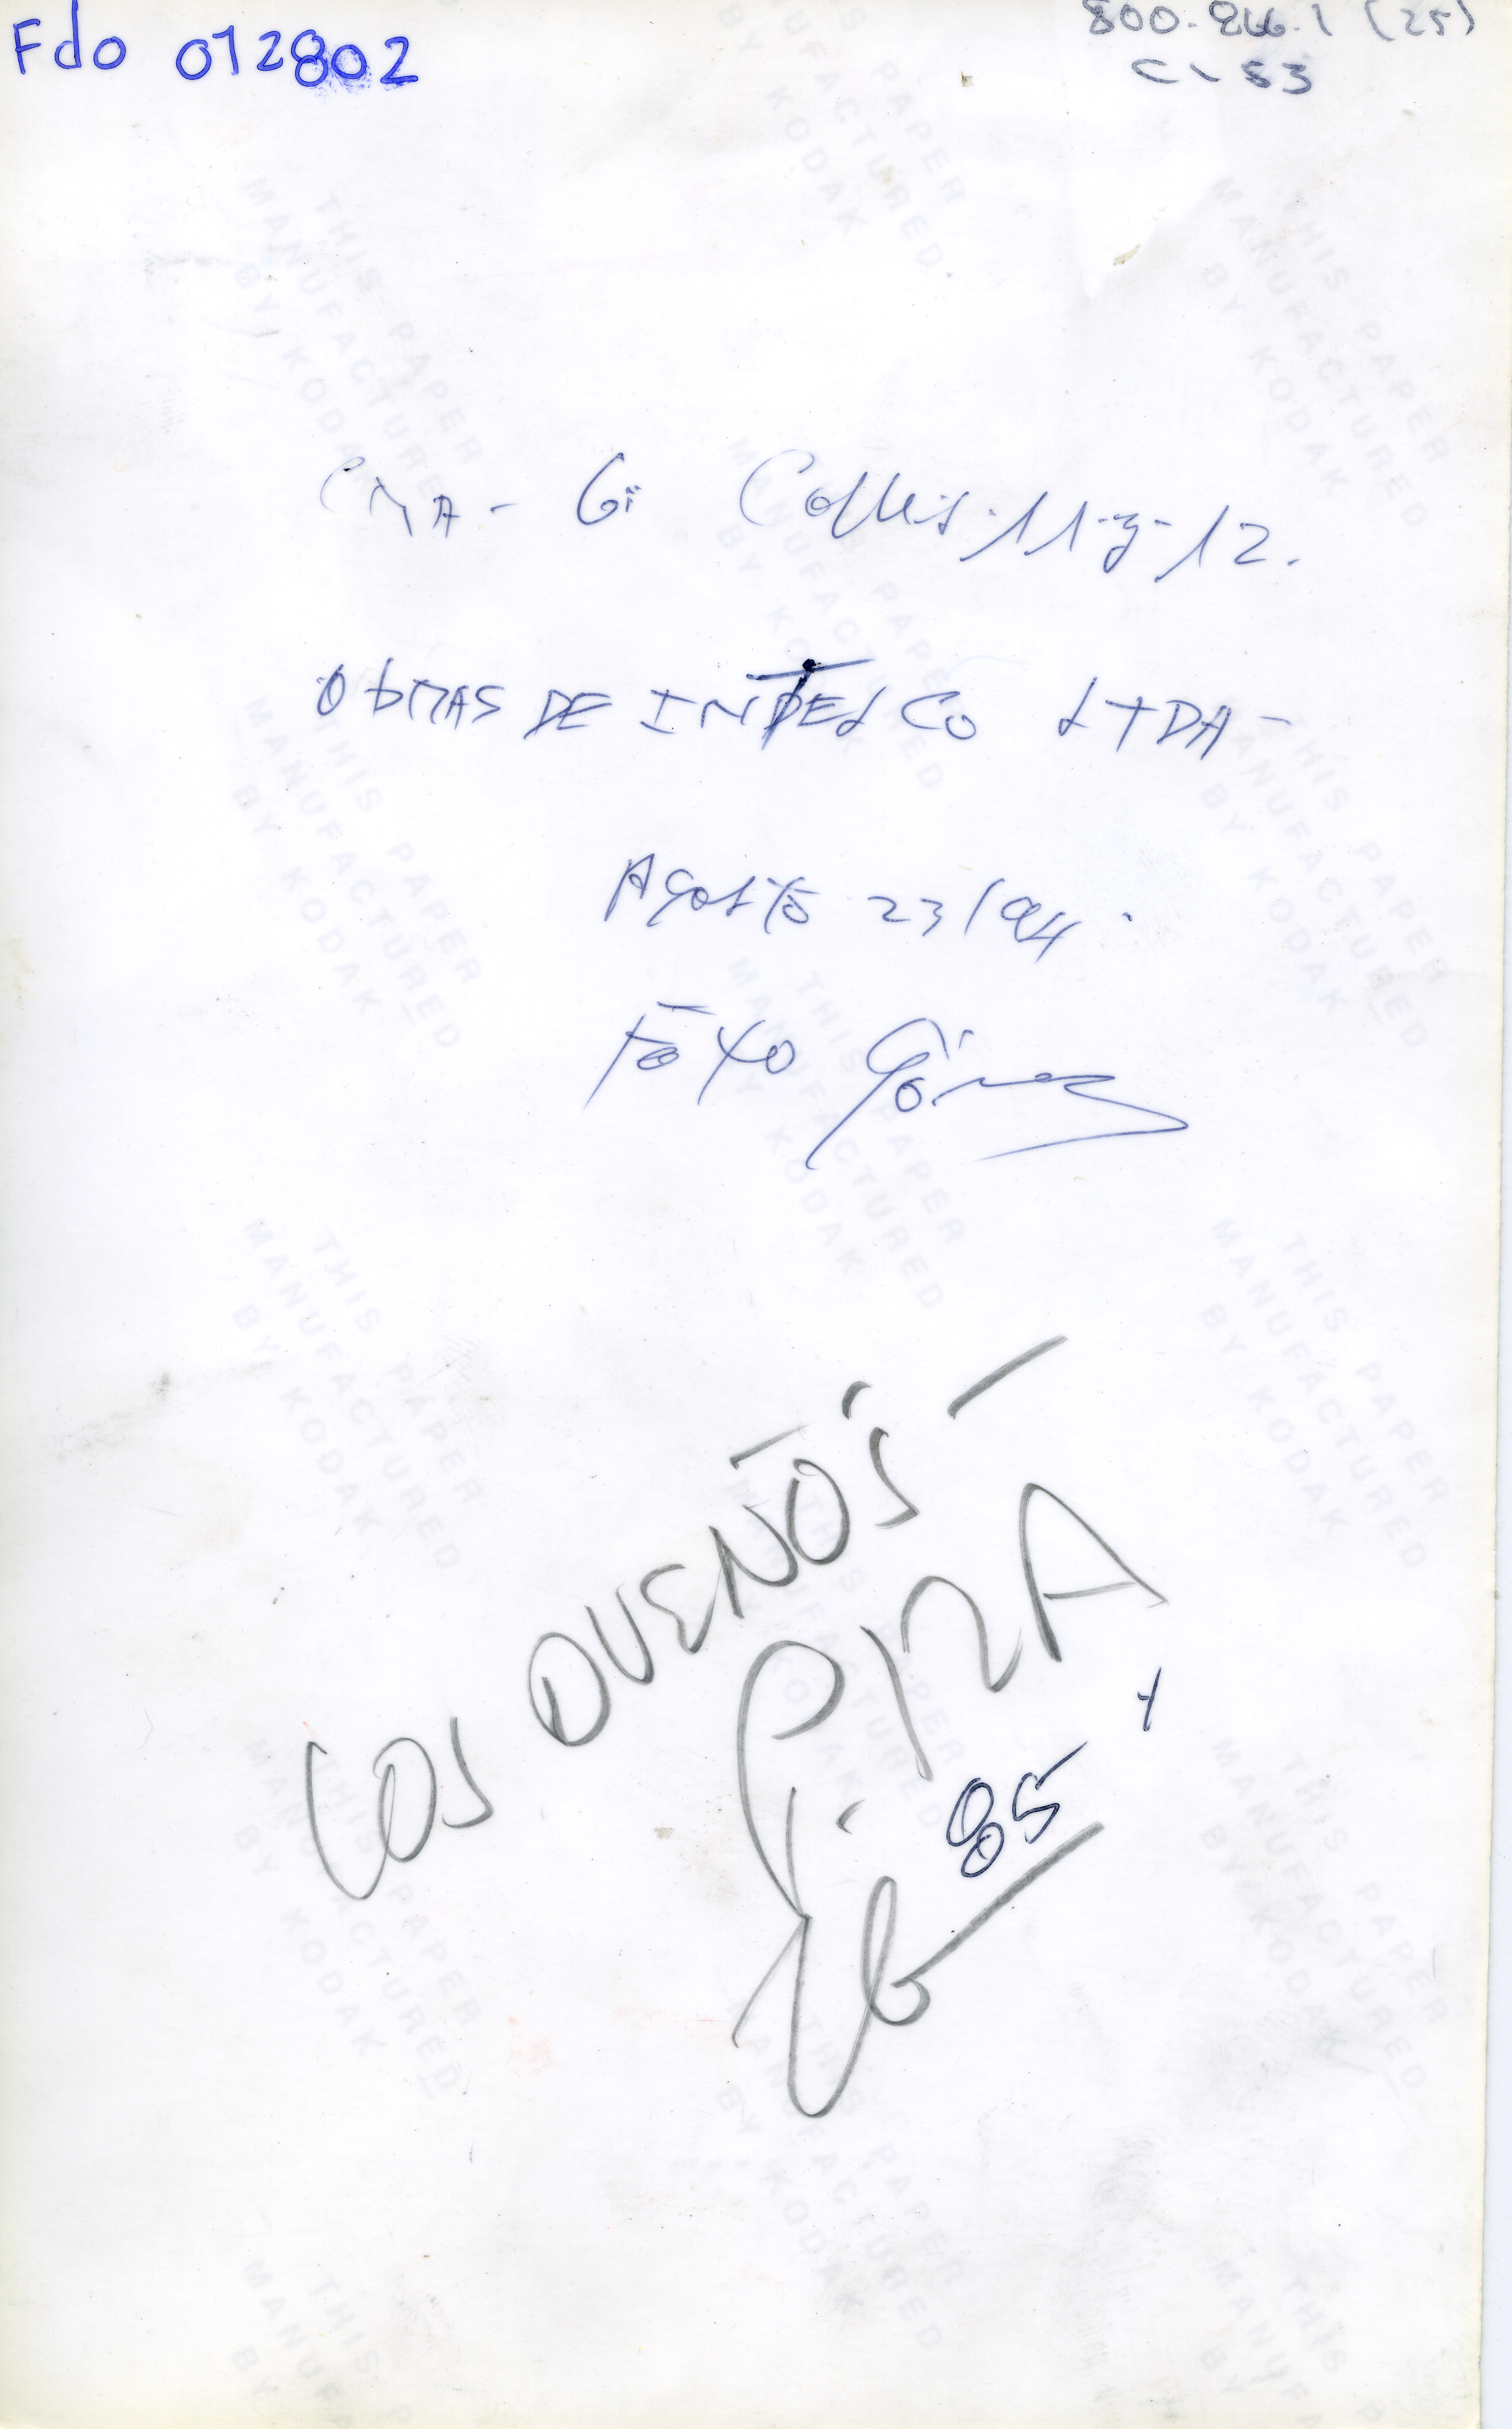 Fdo 012802
800-866.1 (25)
C-53
CRA- 6ª Calles 11 y 12.
ObRAS DE INTELCO LTDA-
Agosto 23/94.
Foto Gómez
LOS DUEÑOS -
PIRA
85
THIS PAPER
MANUFACTURED
BY KODAK